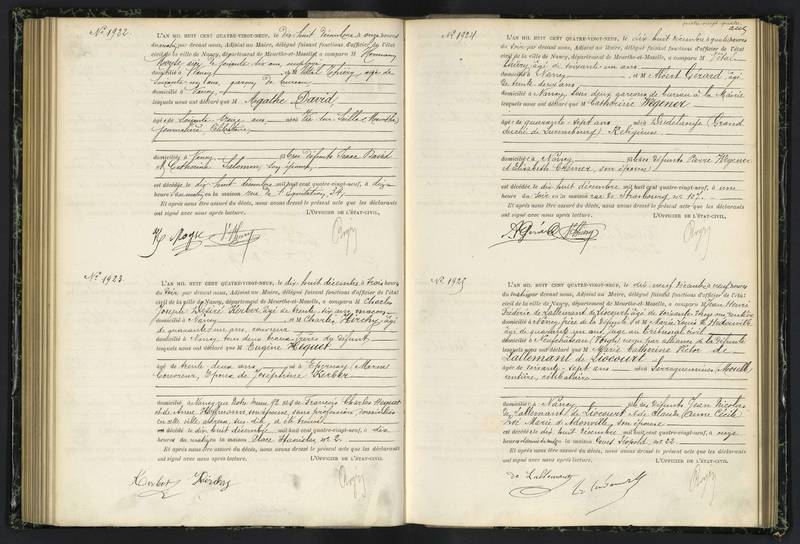 N° 1922.
L'AN MIL HUIT CENT QUATRE-VINGT-NEUF, le dix huit Décembre à onze heures
du matin par devant nous, Adjoint au Maire, délégué faisant fonctions d'officier de l'état
civil de la ville de Nancy, département de Meurthe-et-Moselle, a comparu M Hermann
Moyse, âgé de soixante six ans, employé
domicilié à Nancy et M Vital Thiéry, âgé de
soixante-un ans, garçon de bureau
domicilié à Nancy
lesquels nous ont déclaré que M Agathe David
âgé de soixante treize ans né à Vic-sur-Seille (Moselle)
journalière, Célibataire
domiciliée à Nancy fille des défunts Isaac David
et Catherine Salomon, son épouse
est décédée le dix huit décembre mil huit cent quatre-vingt-neuf, à dix
heures du matin en la maison rue de 34
Et après nous être assuré du décès, nous avons dressé le présent acte que les déclarants
ont signé avec nous après lecture. L'OFFICIER DE L'ÉTAT-CIVIL,
H Moyse Vthiery
N° 1923.
L'AN MIL HUIT CENT QUATRE-VINGT-NEUF, le dix huit décembre à trois heures
du soir par devant nous, Adjoint au Maire, délégué faisant fonctions d'officier de l'état
civil de la ville de Nancy, département de Meurthe-et-Moselle, a comparu M Charles
Joseph Désiré Kerber, âgé de trente six ans, maçon
domicilié à Nancy et M Charles Kirchy, âgé
de quarante un ans, couvreur
domicilié à Nancy, tous deux beaux-frères du défunt
lesquels nous ont déclaré que M Eugène Hequet
âgé de trente deux ans né à Epernay (Marne)
Couvreur, Epoux de Joséphine Kerber
domicilié à Nancy, rue Notre Dame 92 fils de François Charles Hequet
et de Anne Hoffmann, son épouse, sans profession, domiciliés
en cette ville
est décédé le dix huit décembre mil huit cent quatre-vingt-neuf, à dix
heures du matin en la maison Place Stanislas, n° 2.
Et après nous être assuré du décès, nous avons dressé le présent acte que les déclarants
ont signé avec nous après lecture. L'OFFICIER DE L'ÉTAT-CIVIL
Kerber Kirchy
quatre-vingt quatre
N° 1924
L'AN MIL HUIT CENT QUATRE-VINGT-NEUF, le dix huit Décembre à quatre heures
du soir par devant nous, Adjoint au Maire, délégué faisant fonctions d'officier de l'état
civil de la ville de Nancy, département de Meurthe-et-Moselle, a comparu M Vital
Thiéry, âgé de soixante un ans
domicilié à Nancy et M Albert Gérard âgé
de trente deux ans
domicilié à Nancy, tous deux garçons de bureau à la Mairie
lesquels nous ont déclaré que M Catherine Wegener
âgée de quarante-sept ans née à Dudelange (Grand
duché de Luxembourg) Religieuse
domiciliée à Nancy fille des défunts Pierre Wegener
et Elisabeth son épouse
est décédée le dix huit décembre mil huit cent quatre-vingt-neuf, à une
heure du soir en la maison rue de Strasbourg, n° 107.
Et après nous être assuré du décès, nous avons dressé le présent acte que les déclarants
ont signé avec nous après lecture. L'OFFICIER DE L'ÉTAT-CIVIL,
A Gérard Vthiery
N° 1925
L'AN MIL HUIT CENT QUATRE-VINGT-NEUF, le dix neuf Décembre à neuf heures
du matin par devant nous, Adjoint au Maire, délégué faisant fonctions d'officier de l'état
civil de la ville de Nancy, département de Meurthe-et-Moselle, a comparu M Jean Henri
Frédéric de Lallemant de Liocourt, âgé de soixante ans, rentier
domicilié à Nancy, frère de la défunte et M Marie Louis
âgé de quarante un ans, juge au tribunal civil
domicilié à Neufchâteau (Vosges) cousin par alliance de la défunte
lesquels nous ont déclaré que M Marie Catherine Victor de
Lallemant de Liocourt
âgée de soixante sept ans née à Sarreguemines (Moselle)
rentière, célibataire
domiciliée à Nancy fille des défunts Jean Nicolas
de Lallemant de Liocourt et de Claude Anne Cécile
Zoé Marie d'Adonville, son épouse
est décédée le dix huit décembre mil huit cent quatre-vingt-neuf, à onze
heures du matin en la maison Cours Léopold, n° 22
Et après nous être assuré du décès, nous avons dressé le présent acte que les déclarants
ont signé avec nous après lecture. L'OFFICIER DE L'ÉTAT-CIVIL,
de Lallemant